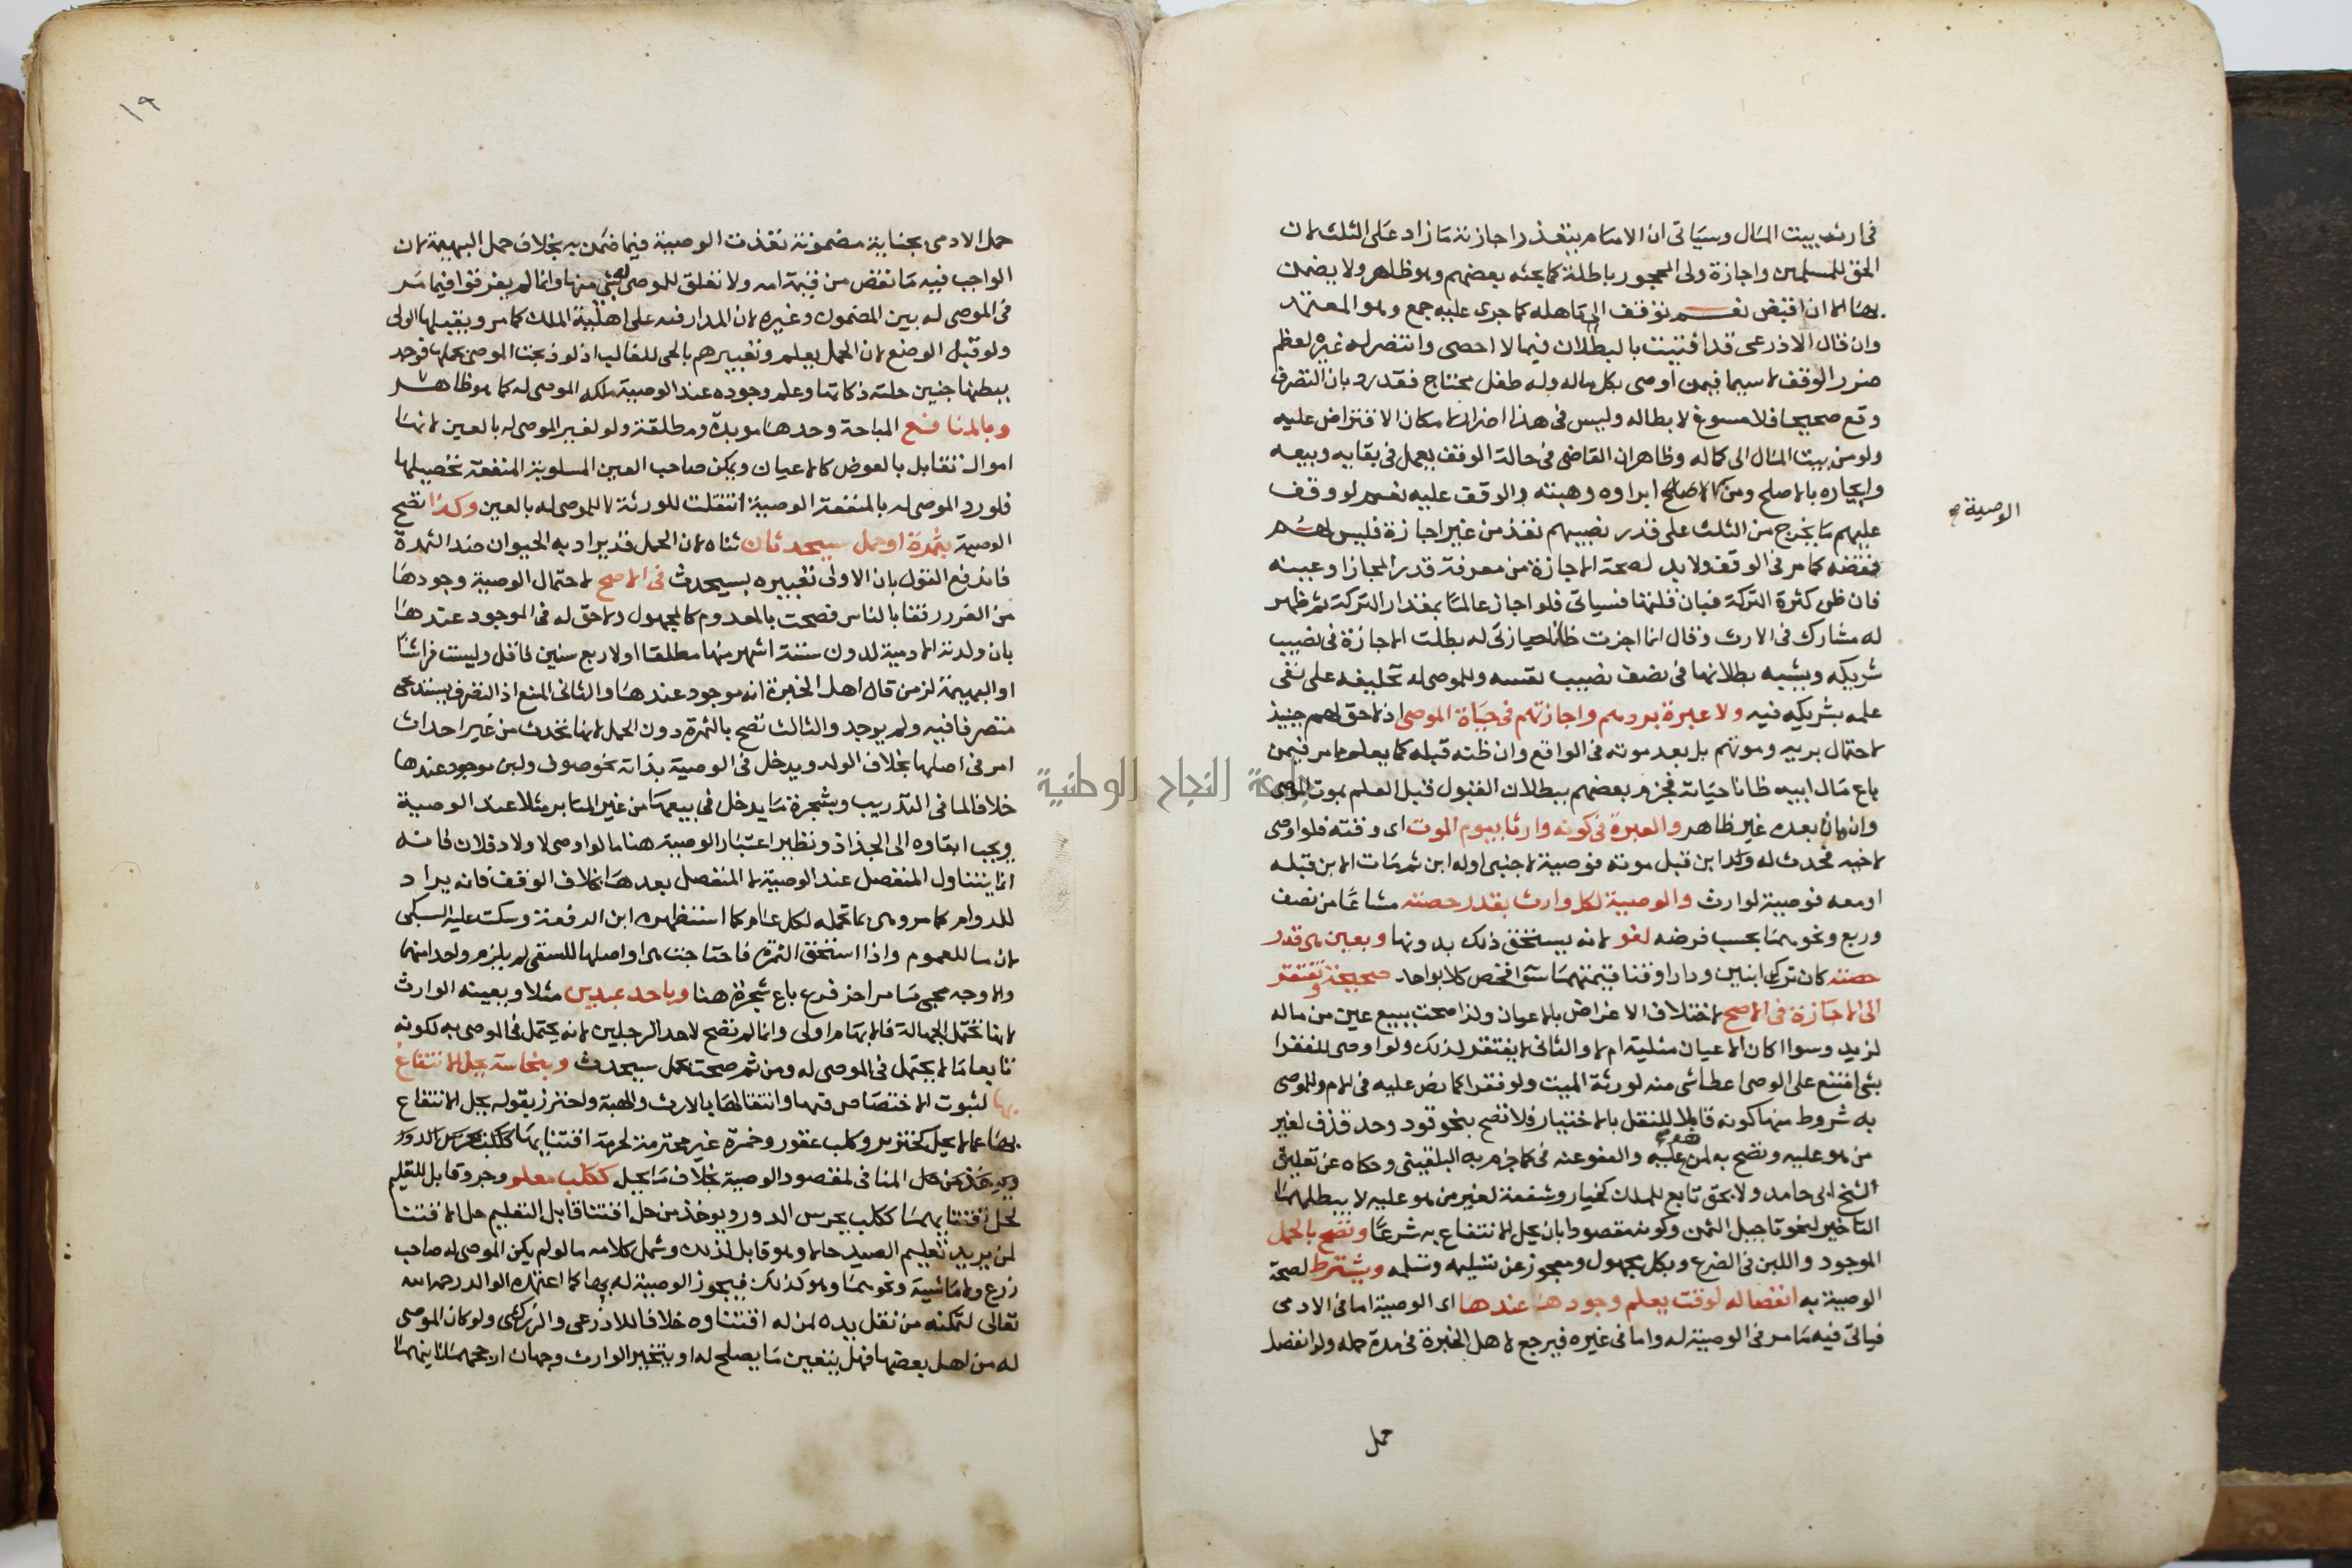 في ارثه بيت المال وسياتي ان الامام يتعذر اجازته ما زاد على الثلث لان
الحق للمسلمين واجازة ولي المحجور باطلة كما بحثه بعضهم وهو ظاهر ولا يضمن
بها الا ان اقبض نعم توقف الى تاهله كما جرى عليه جمع وهو المعتمد
وان قال الاذرعى قد افتيت بالبطلان فيما لا احصى وانتصر له غيره لعظم
ضرر الوقف لا سيما فيمن اوصى بكل ماله وله طفل محتاج فقد رد بان التصرف
وقع صحيحا فلا مسوغ لابطاله وليس في هذا اضرار لامكان الاقتراض عليه
ولو من بيت المال الى كماله وظاهر ان القاضي في حالة الوقف يعمل في بقايه وبيعه
وايجاره بالاصلح ومن الاصلح ابراوه وهبته والوقف عليه نعم لو وقف
عليهم ما يخرج من الثلث على قدر نصيبهم نفذ من غير اجازة فليس لهم
نقضه كما مر في الوقف ولا بد لصحة الاجازة من معرفة قدر المجاز او عينه
فان ظن كثرة التركة فبان قلتها فسياتي فلو اجاز عالما بمقدار التركة ثم ظهر
له مشارك في الارث وقال انما اجزت ظانا حيازتي له بطلت الاجازة في نصيب
شريكه ويشبه بطلانها في نصف نصيب نفسه وللموصى له تحليفه على نفى
علمه بشريكه فيه ولا عبرة بردهم واجازتهم في حياة الموصى اذ لا حق لهم حينيذ
لاحتمال بريه وموتهم بل بعد موته في الواقع وان ظنه قبله كما يعلم مما مر فيمن
باع مال ابيه ظانا حياته فجزم بعضهم ببطلان القبول قبل العلم بموت الموصى
وان بان بعده غير ظاهر والعبرة في كونه وارثا بيوم الموت اى وقته فلو اوصى
لاخيه فحدث له ولد ابن قبل موته فوصية لاجنبى او له ابن ثم مات الابن قبله
او معه فوصية لوارث والوصية لكل وارث بقدر حصته مشاعا من نصف
وربع ونحوهما بحسب فرضه لغو لانه يستحق ذلك بدونها وبعين هى قدر
حصته كان ترك ابنين ودارا وقنا قيمتهما سوا فخص كلا بواحد صحيحة وتفتقر
الى الاجازة في الاصح لاختلاف الاغراض بالاعيان ولذا صحت ببيع عين من ماله
لزيد وسوا اكان الاعيان مثلية ام لا والثانى لا يفتقر لذلك ولو اوصى للفقرا
بشى امتنع على الوصى اعطا شى منه لورثة الميت ولو فقرا كما نص عليه في الام وللموصى
به شروط منها كونه قابلا للنقل بالاختيار فلا تصح بنحو قود وحد قذف لغير
من هو عليه وتصح به لمن هو عليه والعفو عنه في كما جزم به البلقينى وحكاه عن تعليق
الشيخ ابى حامد ولا بحق تابع للملك كخيار وشفعة لغير من هو عليه لا يبطلهما
التاخير لنحو تاجيل الثمن وكونه مقصودا بان يحل الانتفاع به شرعا وتصح بالحمل
الموجود واللبن في الضرع وبكل مجهول ومعجوز عن تسليمه وتسلمه ويشترط لصحة
الوصية به انفصاله لوقت يعلم وجوده عندها اى الوصية اما في الادمى
فياتى فيه ما مر في الوصية له واما في غيره فيرجع لاهل الخبرة في مدة حمله ولو انفصل
حمل
الوصية
١٩
حمل الادمى بجناية مضمونة نفذت الوصية فيما ضمن به بخلاف حمل البهيمة لان
الواجب فيه ما نقص من قيمة امه ولا تعلق للموصى له بشى منها وانما لم يفرقوا فيما مر
في الموصى له بين المضمون وغيره لان المدار فيه على اهلية الملك كما مر ويقبلها الولى
ولو قبل الوضع لان الحمل يعلم وتعبيرهم بالحى للغالب اذ لو ذبحت الموصى بحملها فوجد
ببطنها جنين حلته ذكاتها وعلم وجوده عند الوصية ملكه الموصى له كما هو ظاهر
وبالمنافع المباحة وحدها موبدة ومطلقة ولو لغير الموصى له بالعين لانها
اموال تقابل بالعوض كالاعيان ويمكن صاحب العين المسلوبة المنفعة تحصيلها
فلو رد الموصى له بالمنفعة الوصية انتقلت للورثة لا للموصى له بالعين وكذا تصح
الوصية بثمرة او حمل سيحدثان ثناه لان الحمل قد يراد به الحيوان ضد الثمرة
فاندفع القول بان الاولى تعبيره بسيحدث في الاصح لاحتمال الوصية وجوها
من الغرر رفقا بالناس فصحت بالمعدوم كالمجهول ولا حق له في الموجود عندها
بان ولدته الادمية لدون ستة اشهر منها مطلقا او لاربع سنين فاقل وليست فراشا
او البهيمة لزمن قال اهل الخبرة انه موجود عندها والثانى المنع اذ التصرف يستدعى
متصرفا فيه ولم يوجد والثالث تصح بالثمرة دون الحمل لانها تحدث من غير احداث
امر في اصلها بخلاف الولد ويدخل في الوصية بذاته نحو صوف ولبن موجود عندها
خلافا لما في التدريب وبشجرة ما يدخل في بيعها من غير المتابر مثلا عند الوصية
ويجب ابقاوه الى الجذاذ ونظير اعتبار الوصية هنا ما لو اوصى لاولاد فلان فانه
انما يتناول المنفصل عند الوصية لا المنفصل بعدها بخلاف الوقف فانه يراد
للدوام كما مر وهى بما تحمله لكل عام كما استظهره ابن الرفعة وسكت عليه السبكى
لان ما للعموم واذا استحق الثمرة فاحتاجت هى او اصلها للسقى لم يلزم واحدا منهما
والاوجه مجى ما مر اخر فرع باع شجرة هنا وباحد عبديه مثلا وبعينه الوارث
لانها تحتمل الجهالة فالابهام اولى وانما لم تصح لاحد الرجلين لانه يحتمل في الموصى به لكونه
تابعا ما لا يحتمل في الموصى له ومن ثم صحت بحمل سيحدث وبنجاسة يحل الانتفاع
بها لثبوت الاختصاص فيها وانتقالها بالارث والهبة واحترز بقوله يحل الانتفاع
بها عما لا يحل كخنزير وكلب عقور وخمرة غير محترمة لحرمة اقتنايها ككلب يحرس الدور
ويوخذ من حل المنافى لمقصود الوصية بخلاف ما يحل ككلب معلم وجرو قابل للتعليم
لحل اقتنايهما ككلب يحرس الدور ويوخذ من حل اقتنا قابل التعليم حل الاقتنا
لمن يريد تعليم الصيد حالا وهو قابل لذلك وشمل كلامه ما لو لم يكن الموصى له صاحب
زرع ولا ماشية ونحوهما وهو كذلك فيجوز الوصية له بها كما اعتمده الوالد رحمه الله
تعالى لتمكنه من نقل يده لمن له اقتناوه خلافا للاذرعى والزركشى ولو كان الموصى
له من اهل بعضها فهل يتعين ما يصلح له او يتخير الوارث وجهان ارجحهما ثانيهما
جامعة النجاح الوطنية